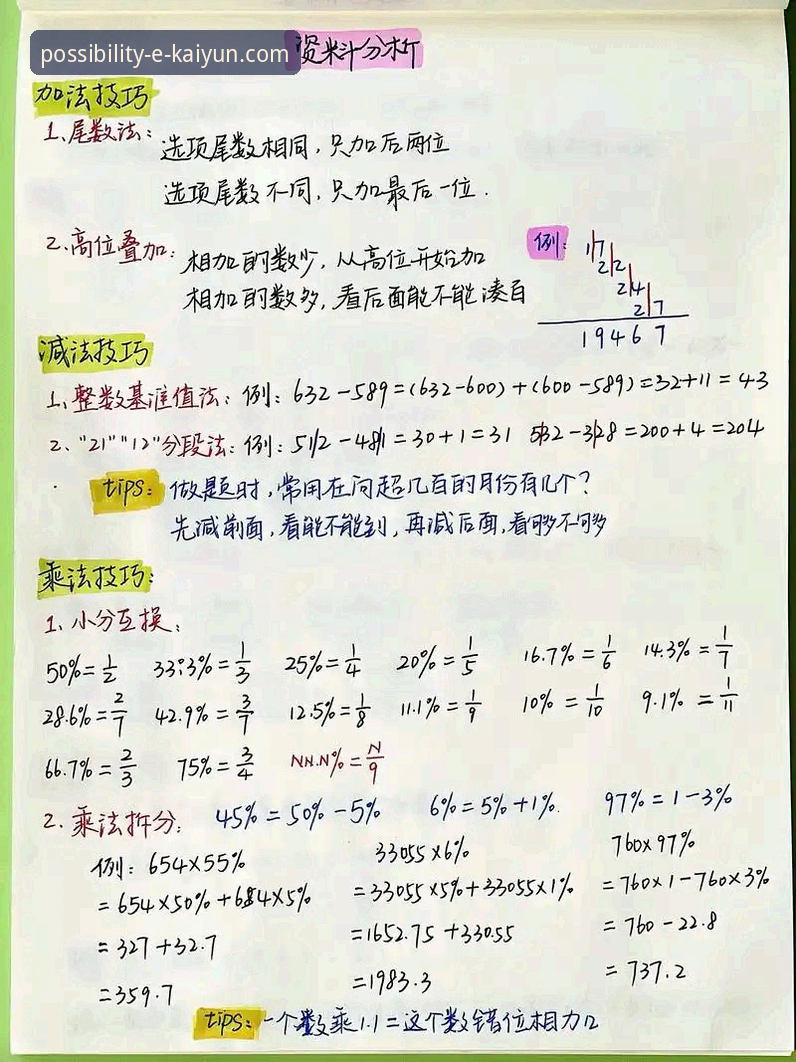 possibility-e-kaiyun.com
资料分析
加法技巧
1、尾数法：
选项尾数相同，只加后两位
选项尾数不同，只加最后一位.
2、高位叠加：
相加的数少，从高位开始加
相加的数多，看后面能不能凑百
例：
17
22
24
27
19467
减法技巧
1、整数基准值法：例：632-589=(632-600)+(600-589)=32+11=43
2、"21""12"分段法：例：51/2-48/1=30+1=31 5/32-3/28=200+4=204
tips：做题时，常用在问超几百的月份有几个？
先减前面，看能不能到，再减后面，看够不够
乘法技巧：
1、小分互换：
50%=1/2 33.3%=1/3 25%=1/4 20%=1/5 16.7%=1/6 14.3%=1/7
28.6%=2/7 42.9%=3/7 12.5%=1/8 11.1%=1/9 10%=1/10 9.1%=1/11
66.7%=2/3 75%=3/4 NN.N%=N/9
2、乘法拆分： 45%=50%-5% 6%=5%+1% 97%=1-3%
例：654×55%
=654×50%+654×5%
=327+32.7
=359.7
33055×6%
=33055×5%+33055×1%
=1652.75+330.55
=1983.3
760×97%
=760×1-760×3%
=760-22.8
=737.2
tips：一个数乘1.1=这个数错位相加